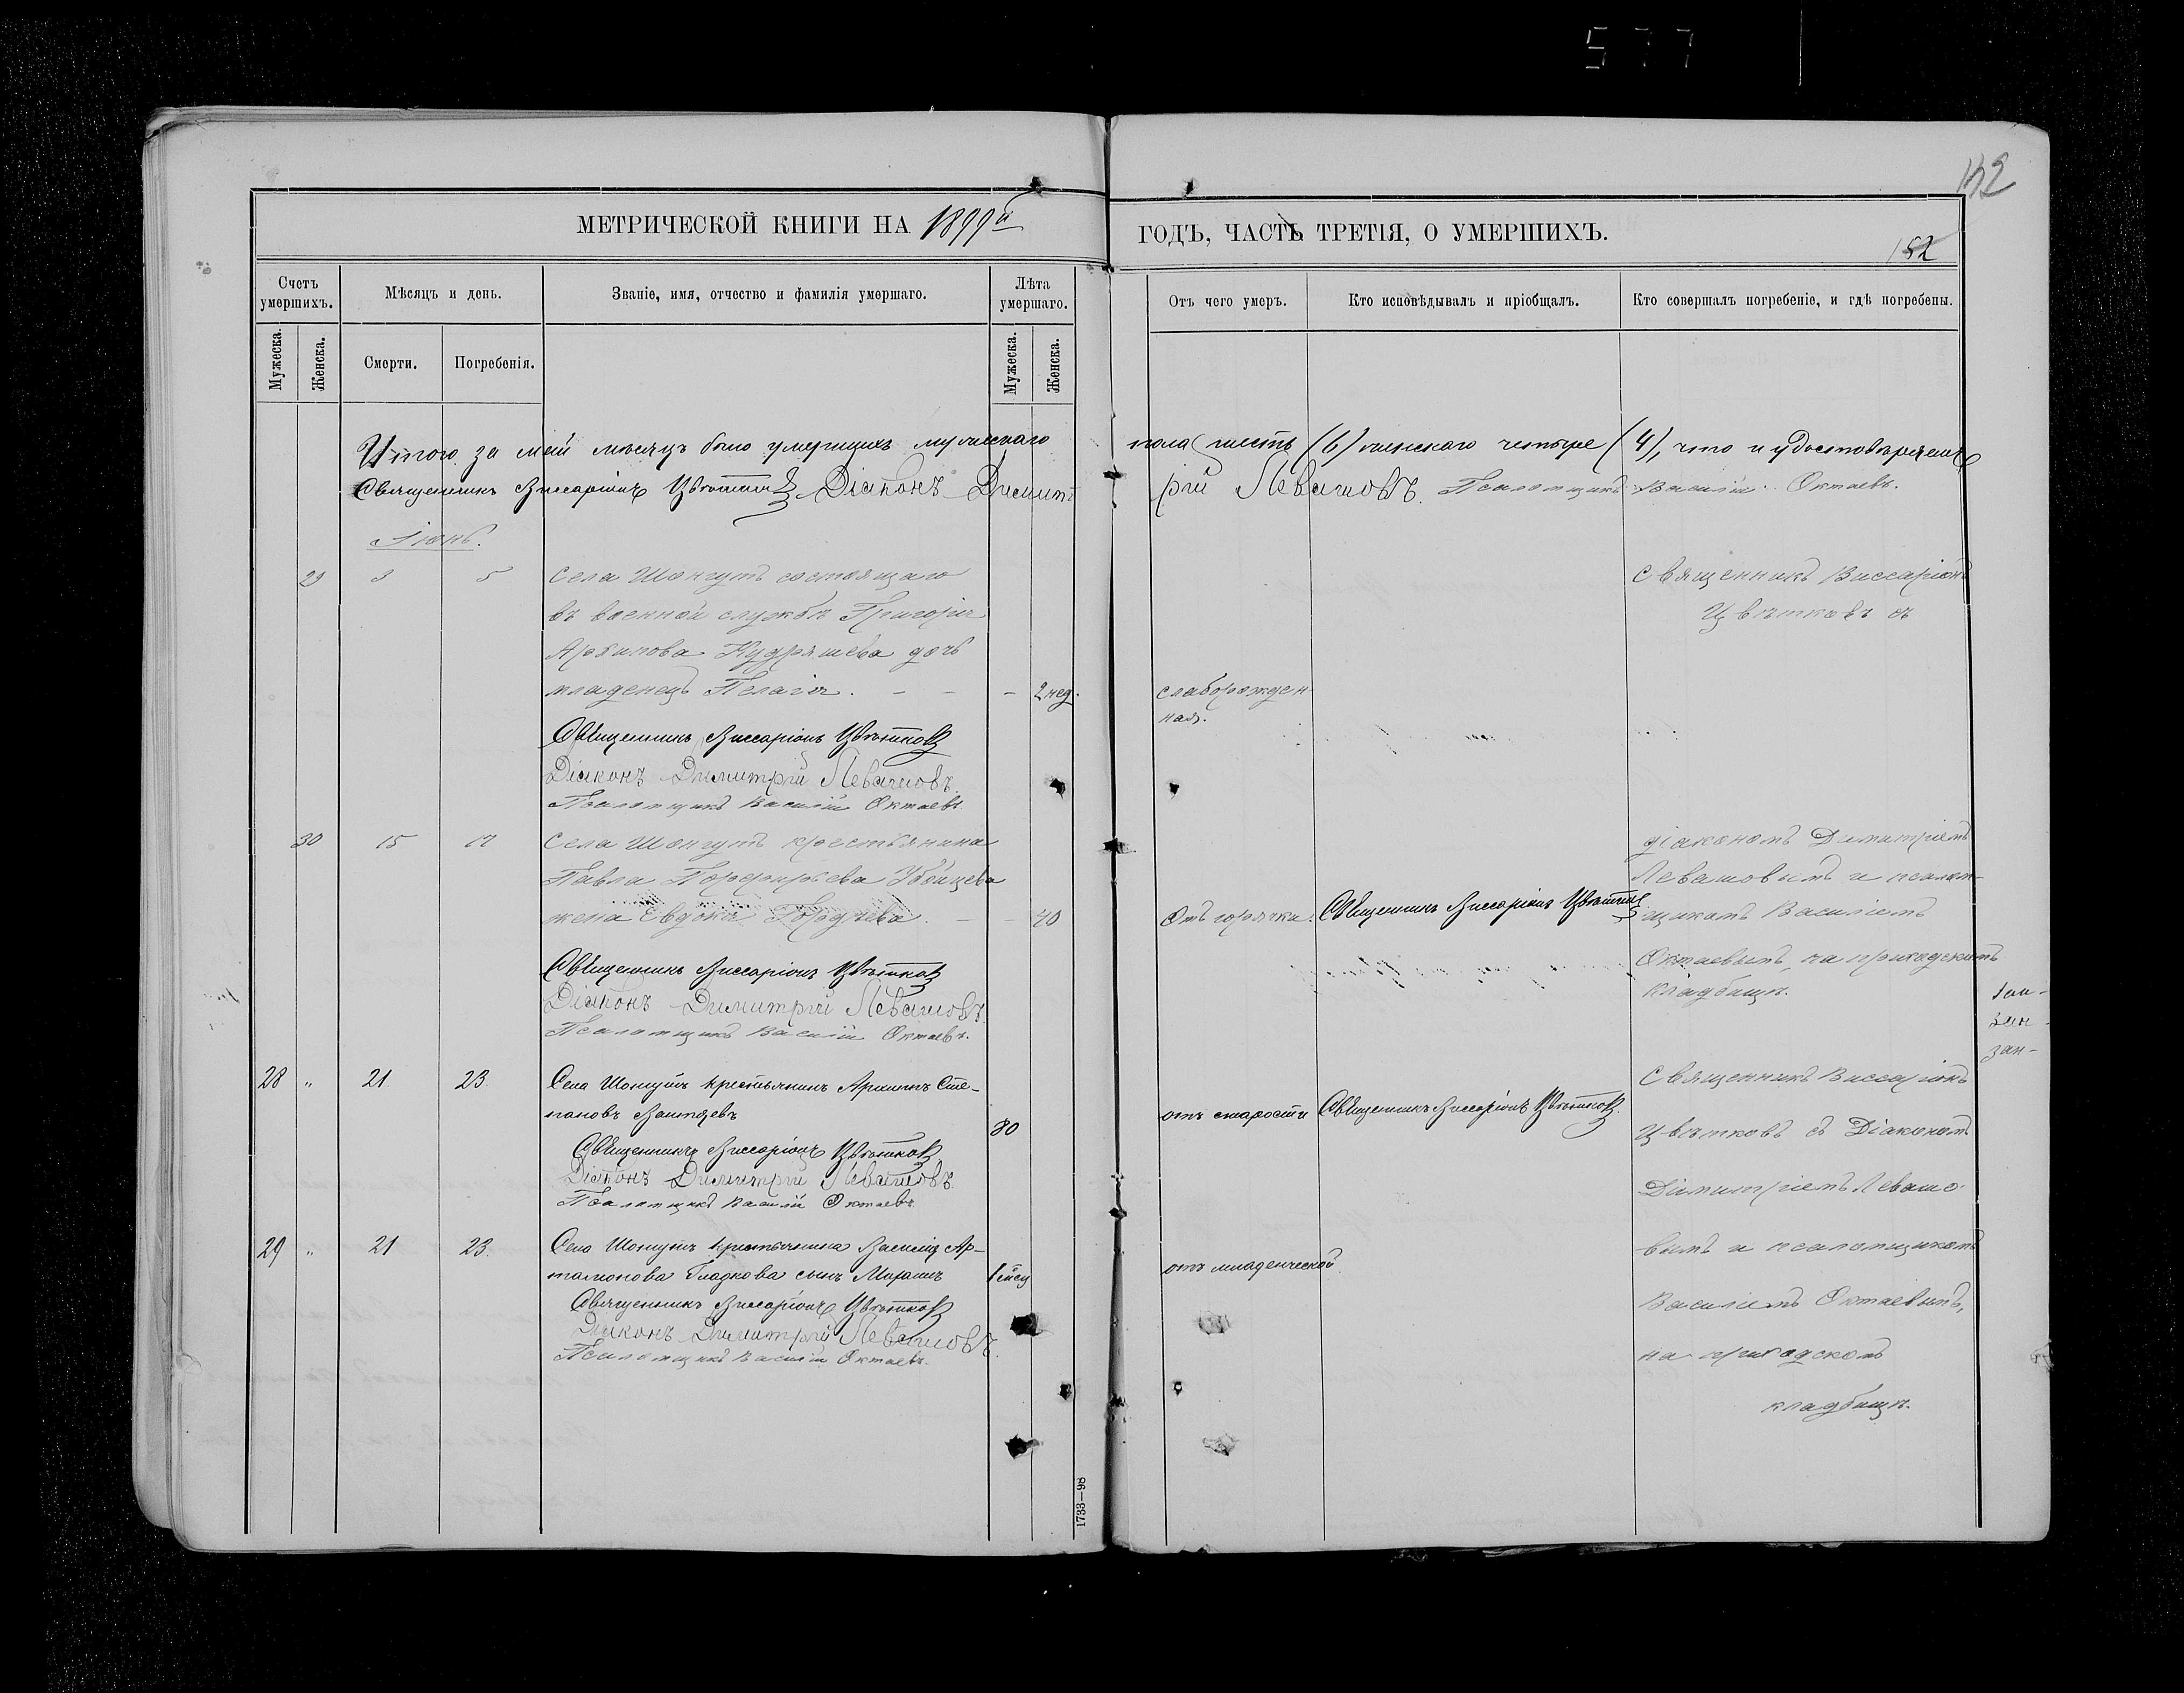 577
142
МЕТРИЧЕСКОЙ КНИГИ НА 1899й
ГОДЪ, ЧАСТЬ ТРЕТІЯ, О УМЕРШИХЪ.
152
Счетъ умершихъ.
Мѣсяцъ и день.
Званіе, имя, отчество и фамилія умершаго.
Лѣта умершаго.
Отъ чего умеръ.
Кто исповѣдывалъ и пріобщалъ.
Кто совершалъ погребеніе, и гдѣ погребены.
Мужеска.
Женска.
Смерти.
Погребенія.
Мужеска.
Женска.
Итого за май мѣсяцъ было умершихъ мужескаго пола шесть (6) женскаго четыре (4), что и удостовѣряемъ
Священникъ Виссаріонъ Цвѣтковъ Діаконъ Димитрій Левашовъ. Псаломщикъ Василій Октаевъ.
Іюнь.
29 3 5 Села Шонгутъ состоящаго
въ военной службѣ Григорія
Архипова Кудряшева дочь
младенецъ Пелагія. – – – 2 нед.
слаборожден-
ная.
Священникъ Виссаріонъ Цвѣтковъ
Діаконъ Димитрій Левашовъ.
Псаломщикъ Василій Октаевъ.
Священникъ Виссаріонъ
Цвѣтковъ съ
30 15 17 Села Шонгутъ крестьянина
Павла Порфирьева Убоицева
жена Евдокія – – 40
Отъ горячки. Священникъ Виссаріонъ Цвѣтковъ
Священникъ Виссаріонъ Цвѣтковъ
Діаконъ Димитрій Левашовъ.
Псаломщикъ Василій Октаевъ.
діакономъ Димитріемъ
Левашовымъ и псалом-
щикомъ Василіемъ
Октаевымъ, на приходскомъ
кладбищѣ.
28 " 21 23 Села Шонгутъ крестьянинъ Архипъ Сте-
пановъ
80
отъ старости Священникъ Виссаріонъ Цвѣтковъ.
Священникъ Виссаріонъ Цвѣтковъ
Діаконъ Димитрій Левашовъ.
Псаломщикъ Василій Октаевъ.
29 " 21 23. Села Шонгутъ крестьянина Василія Ар-
тамонова Гладкова сынъ 1 мѣсяц
отъ младенческой
Священникъ Виссаріонъ Цвѣтковъ
Діаконъ Димитрій Левашовъ.
Псаломщикъ Василій Октаевъ.
Священникъ Виссаріонъ
Цвѣтковъ съ Діакономъ
Димитріемъ Левашо-
вымъ и псаломщикомъ
Василіемъ Октаевымъ,
на приходскомъ
кладбищѣ.
1733—98